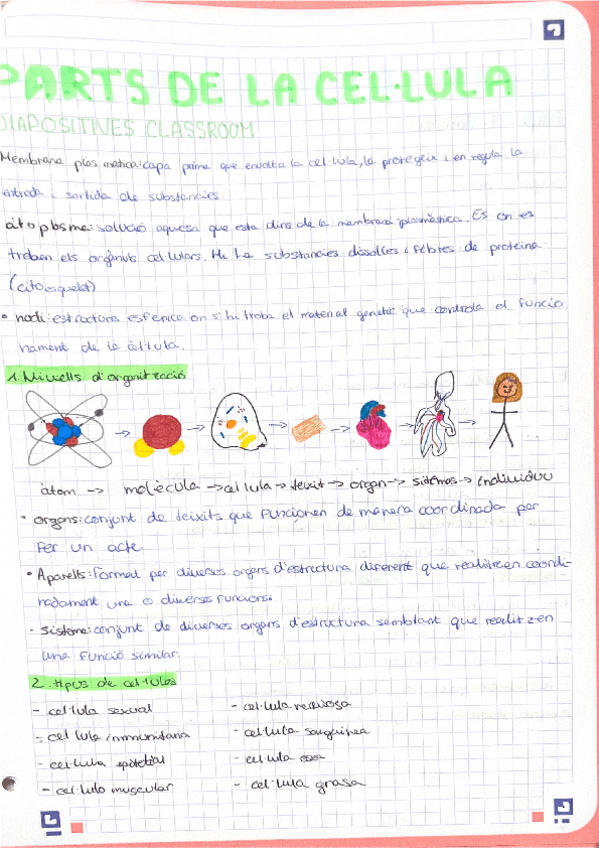 PARTS DE LA CEL·LULA
DIAPOSITIVES CLASSROOM
Membrana plasmatica: capa prima que envolta la cel·lula, la protegeix i en regula la
entrada i sortida de substancies.
citoplasma: solució aquosa que esta dins de la membrana plasmàtica. Es on es
troben els orgànuls cel·lulars. Hi ha substancies dissoltes i fibres de proteina
(citoesquelet)
• nucli: estructura esferica on s'hi troba el material genetic que controla el funcio
nament de la cèl·lula.
1. Nivells d'organització
àtom -> molècula -> cel·lula -> teixit -> organ -> sistemas -> individuu
• organs: conjunt de teixits que funcionen de manera coordinada per
fer un acte
• Aparells: format per diversos organs d'estructura diferent que realitzen coordi-
nadament una o diverses funcions.
• sistema: conjunt de diversos organs d'estructura semblant que realitzen
una funció similar.
2. tipus de cel·lules
- cel·lula sexual - cel·lula nerviosa
- cel·lula inmunitaria - cel·lula sanguinea
- cel·lula epitelial - cel·lula
- cel·lula muscular - cel·lula grasa